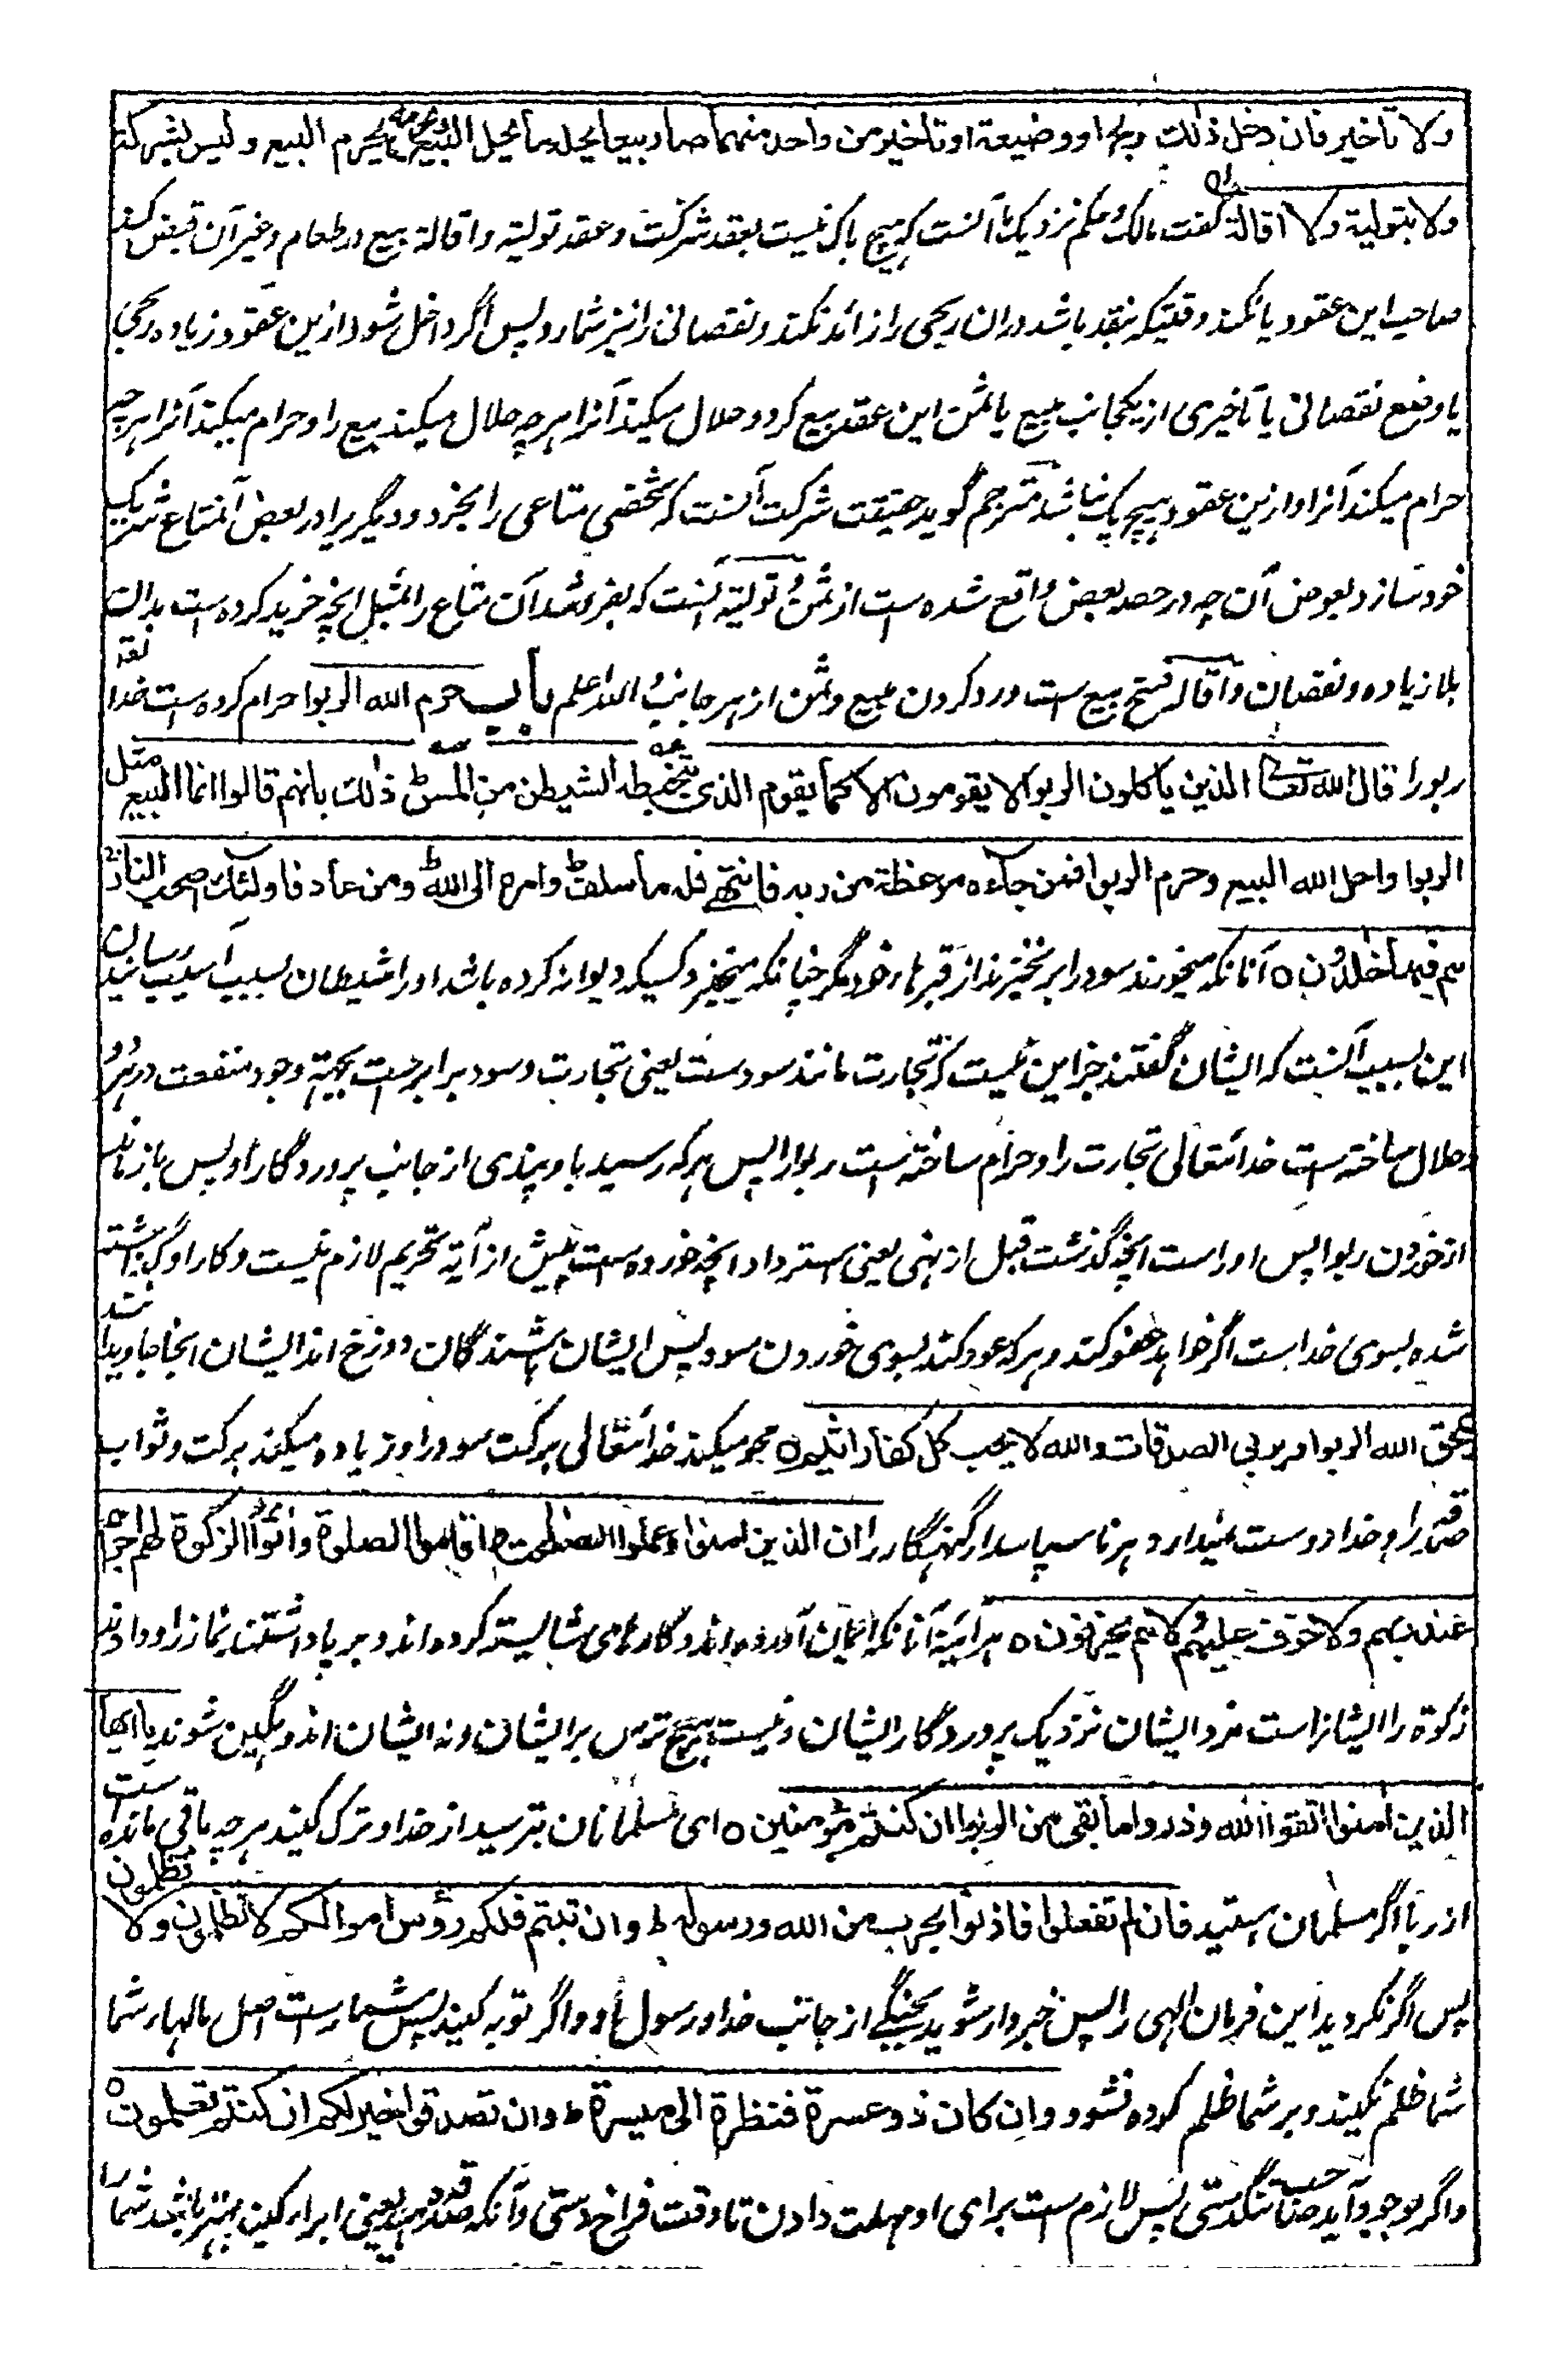 ولا تأخير فان دخل ذلك ربح او وضيعة او تاخير من واحد منهما صار بيعا يحله ما يحل البيع ويحرمه ما يحرم البيع وليس بشركة
ولا بتولية ولا اقالة گفت مالک حکم نزدیک ما آنست که هیچ باک نیست بعقد شرکت و عقد تولیه و اقالة بیع در طعام و غیر آن قبض کند
صاحب این عقود یا نکند وقتیکه بنقد باشد دران ربحی را زائد نکند و نقصانی را نیز شمارد پس اگر داخل شود ازین عقود زیاده ربحی
یا وضع نقصانی یا تأخیری از یکجانب مبیع یا ثمن این عقد بیع گردد حلال میکند آنرا هر چه حلال میکند بیع را و حرام میکند آنرا هر چه
حرام میکند آنرا و ازین عقود هیچ یک نباشد مترجم گوید حقیقت شرکت آنست که شخصی متاعی را بخرد و دیگریرا در بعض آنمتاع شریک
خود سازد بعوض آن چه در حصه بعض واقع شده است از ثمن و تولیه آنست که بفروشد آن متاع را بمثل آنچه خرید کرده است بدان نقد
بلا زیاده و نقصان و اقاله فسخ بیع ست و رد کردن مبیع و ثمن از هر جانب والله اعلم باب حرم الله الربوا حرام کرده ست خدا
ربورا قال الله تعالى الذين ياكلون الربوا لا يقومون الا كما يقوم الذى يتخبطه الشيطن من المس ذلك بانهم قالوا انما البيع مثل
الربوا واحل الله البيع وحرم الربوا فمن جاءه موعظة من ربه فانتهى فله ما سلف وامره الى الله ومن عاد فاولئك اصحب النار
هم فيها خلدون ٥ آنانکه میخورند سود را بر نخیزند از قبرهاء خود مگر چنانکه میخیزد کسیکه دیوانه کرده باشد او را شیطان بسبب آسیب رسانیدن
این بسبب آنست که ایشان گفتند جز این نیست که تجارت مانند سودست یعنی تجارت و سود برابرست بجهة وجود منفعت در هر دو
و حلال ساخته ست خدا تعالی تجارت را و حرام ساخته ست ربوارا پس هر که رسید باو پندی از جانب پروردگار او پس باز ماند
از خوردن ربوا پس او راست آنچه گذشت قبل از نهی یعنی استرداد آنچه خورده ست پیش از آیة تحریم لازم نیست و کار او گذاشته
شده بسوی خداست اگر خواهد عفو کند و هر که عود کند بسوی خوردن سود پس ایشان باشندگان دوزخ اند ایشان آنجا جاویدانند
يمحق الله الربوا ويربي الصدقات والله لا يحب كل كفار اثيم ٥ محو میکند خدا تعالی برکت سود را و زیاده میکند برکت و ثواب
صدقه را و خدا دوست نمیدارد هر ناسپاسدار گنهگار را ان الذين امنوا وعملوا الصلحت واقاموا الصلوة واتوا الزكوة لهم اجرهم
عند ربهم ولا خوف عليهم ولا هم يحزنون ٥ هر آئینه آنانکه ایمان آورده اند و کارهای شایسته کرده اند و بر پا داشتند نماز را و دادند
زکوة را ایشانراست مزد ایشان نزدیک پروردگار ایشان و نیست هیچ ترس بر ایشان و نه ایشان اندوهگین شوند يا ايها
الذين امنوا اتقوا الله وذروا ما بقى من الربوا ان كنتم مؤمنين ٥ ای مسلمانان بترسید از خدا و ترک کنید هر چه باقی مانده ست
از ربا اگر مسلمان هستید فان لم تفعلوا فاذنوا بحرب من الله ورسوله ط وان تبتم فلكم رؤس اموالكم لا تظلمون ولا تظلمون
پس اگر نکردید این فرمان الهی را پس خبردار شوید بجنگی از جانب خدا و رسول او و اگر توبه کنید پس شما راست اصل مالهاء شما
شما ظلم نکنید و بر شما ظلم کرده نشود وان كان ذو عسرة فنظرة الى ميسرة ط وان تصدقوا خير لكم ان كنتم تعلمون ٥
و اگر بوجود آید صاحب تنگدستی پس لازم ست برای او مهلت دادن تا وقت فراخ دستی و آنکه صدقه دهید یعنی ابراء کنید بهتر باشد شما را